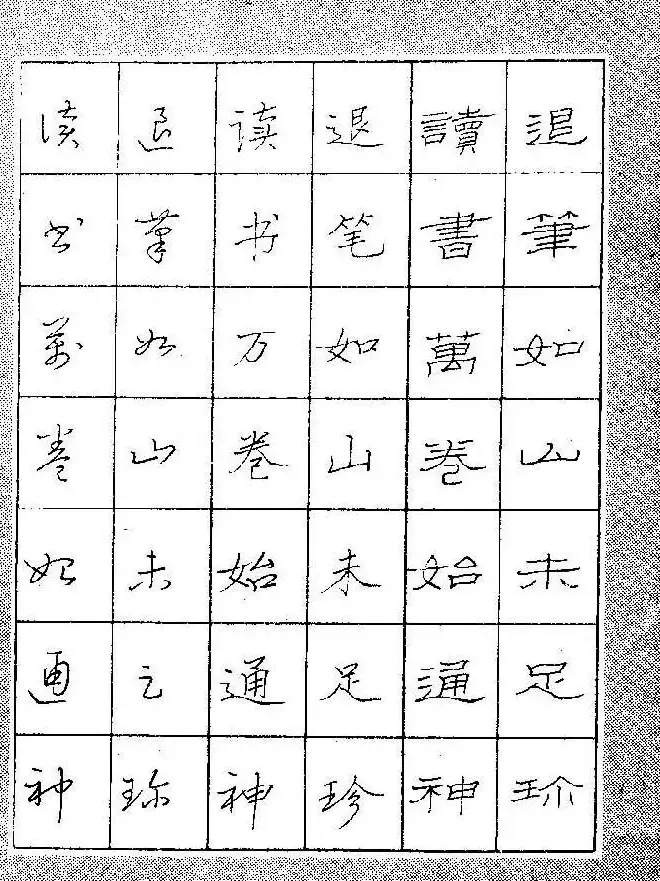 退筆如山未足珍
讀書萬卷始通神
退笔如山未足珍
读书万卷始通神
退筆如山未足珍
读书萬卷始通神